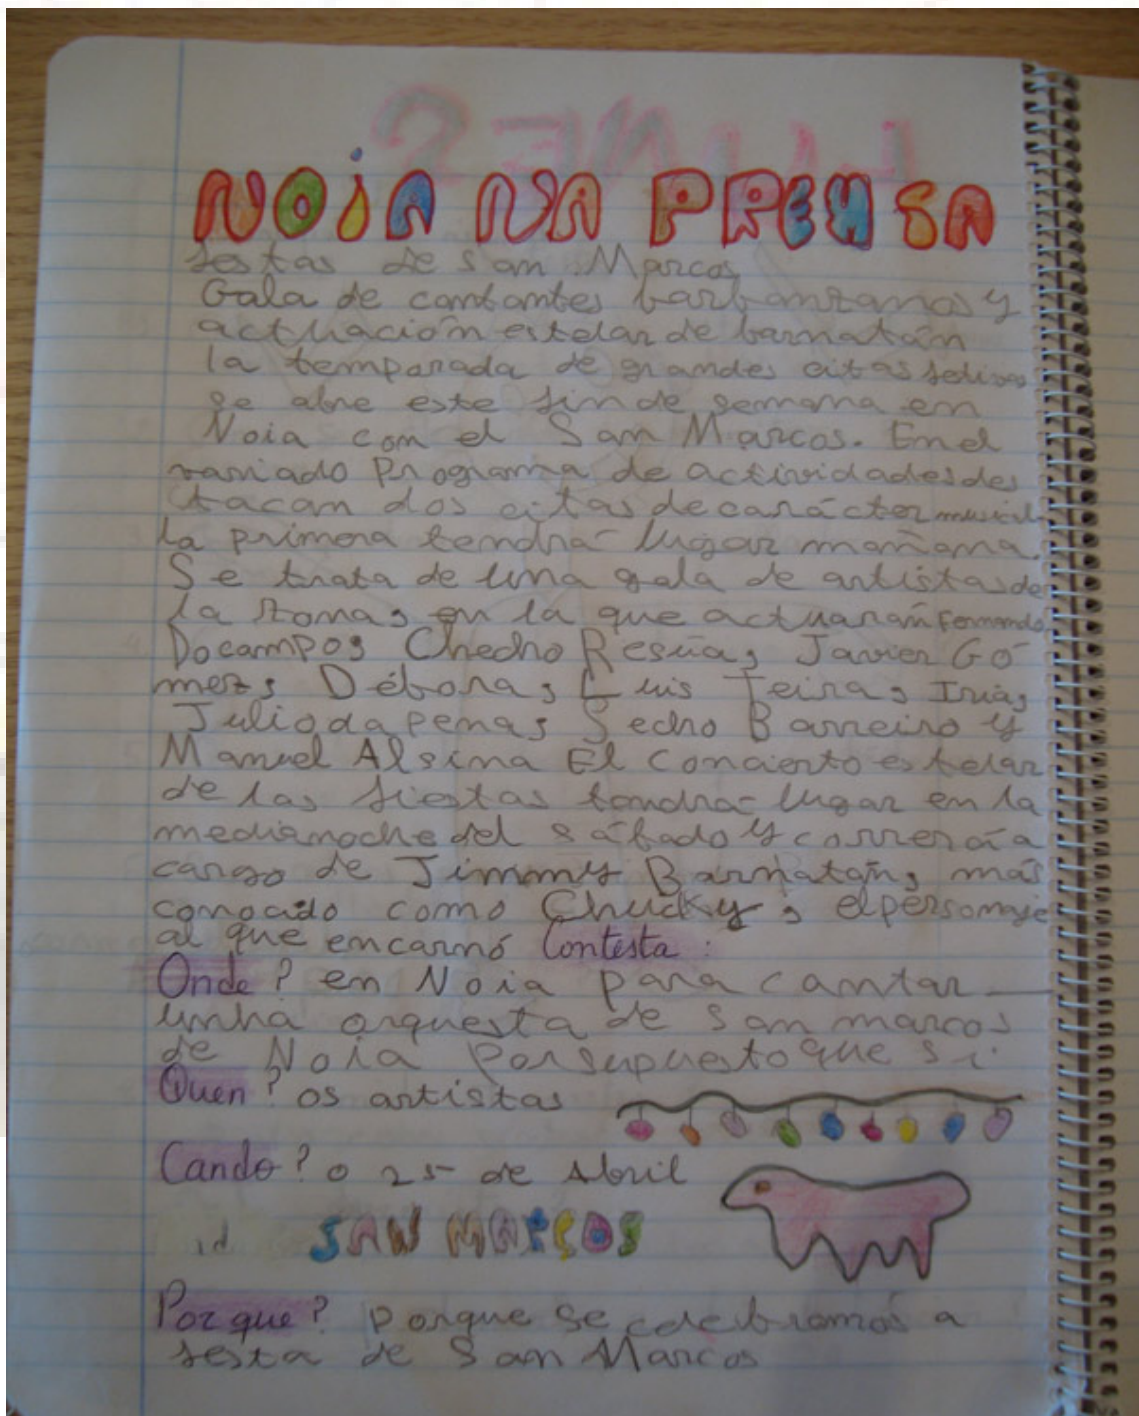 NOiA NA PRENSA
festas de San Marcos
Gala de cantantes barbanzanos y
actuación estelar de barnatán
la temporada de grandes citas
se abre este fin de semana en
Noia con el San Marcos. En el
variado Programa de actividades des
tacan dos citas de carácter musical
la primera tendrá lugar mañana.
Se trata de una gala de artistas de
la zona, en la que actuarán Fernando
Docampo, Checho Resúa, Javier Gó
mez, Débora, Luis Teira, Iria,
Julio da pena, Secho Barreiro y
Manuel Alsina El Concierto estelar
de las fiestas tendrá lugar en la
medianoche del sábado y correrá a
cargo de Jimmy Barnatán, más
conocido como Chucky, el personaje
al que encarnó Contesta:
Onde? en Noia para cantar
unha orquesta de san marcos
de Noia Por supuesto que si.
Quen? os artistas
Cando? o 25 de Abril
SAN MARCOS
Por que? Porque se celebramos a
festa de San Marcos